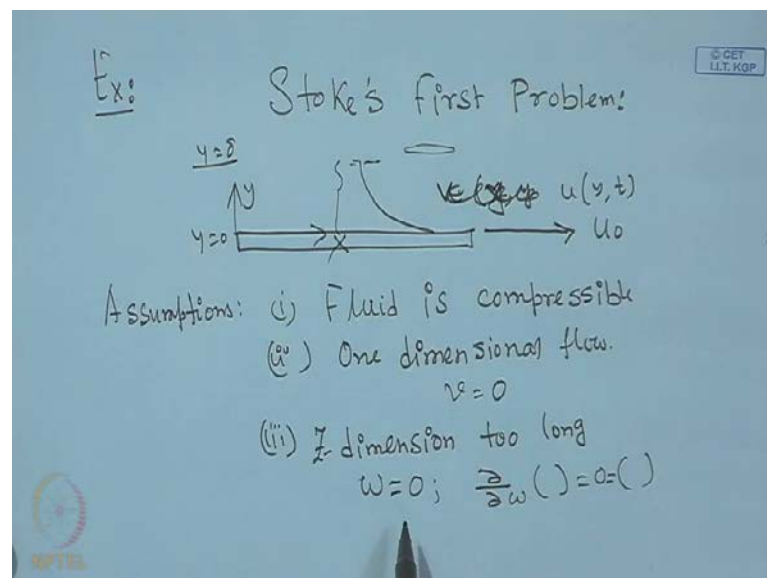 Ex:
Stoke's first Problem:
© CET
I.I.T. KGP
y=δ
y
u(y,t)
y=0
u0
Assumptions: (i) Fluid is compressible
(ii) One dimensional flow.
v=0
(iii) Z-dimension too long
w=0; ∂/∂w ( )=0=( )
NPTEL